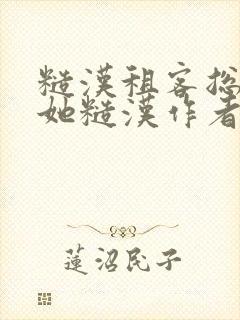 糙漢租客總
她糙漢作者
蓮沼民子